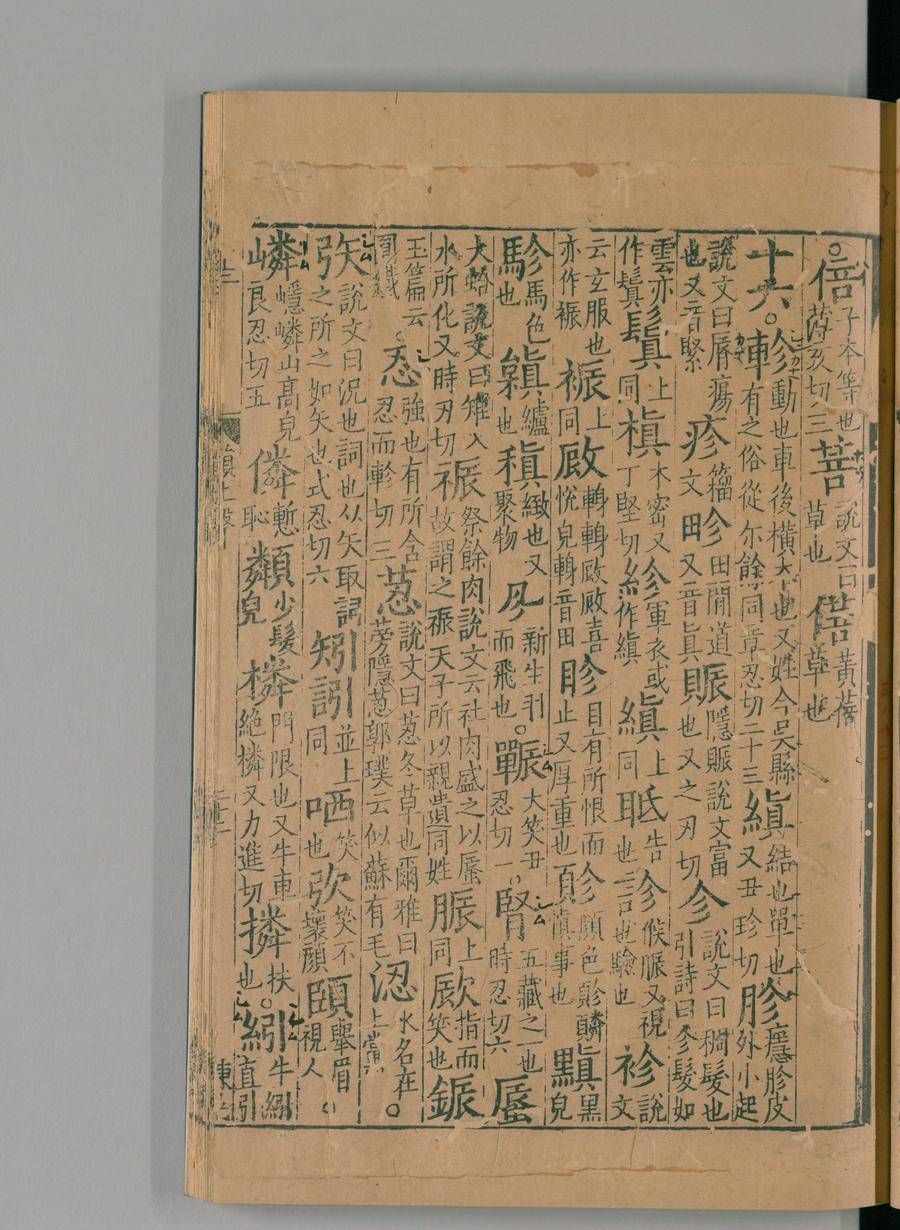 。倍子本等也薄亥切三菩說文曰草也偣黃蓓草也
十六。軫動也車後橫木也又姓今吳縣有之俗從尒餘同章忍切二十三縝結也單也又丑珍切胗癮胗皮外小起
說文曰脣瘍也又音緊疹籀文畛田閒道又音真賑隱賑說文富也又之刃切㐱說文曰稠髮也引詩曰㐱髮如
雲亦作鬒鬒上同槙木密又丁堅切袗單衣或作縝縝上同聄告也診候脈又視也驗也袗說文
云玄服也亦作裖裖上同喜悅皃音田眕目有所恨而止又厚重也顏色慎事也黰黑皃
駗馬色也纑也稹緻也又聚物新生羽而飛也。囅大笑丑忍切一。腎五藏之一也時忍切六蜃
大蛤說文曰雉入水所化又時刃切祳祭餘肉說文云社肉盛之以蜃故謂之祳天子所以親遺同姓脤上同指而笑也鋠
玉篇云圜鐵。忍強也有所含忍而軫切三荵說文曰荵冬草也爾雅曰蒡隱荵郭璞云似蘇有毛涊水名在上黨。
矤說文曰況也詞也从矢取詞之所之如矢也式忍切六矧訠並上同哂笑也弞笑不壞顏頣舉眉視人。
嶙嶾嶙山高皃良忍切五僯慙恥少髮皃橉門限也又牛車絕橉又力進切撛扶也。紖牛紖直引